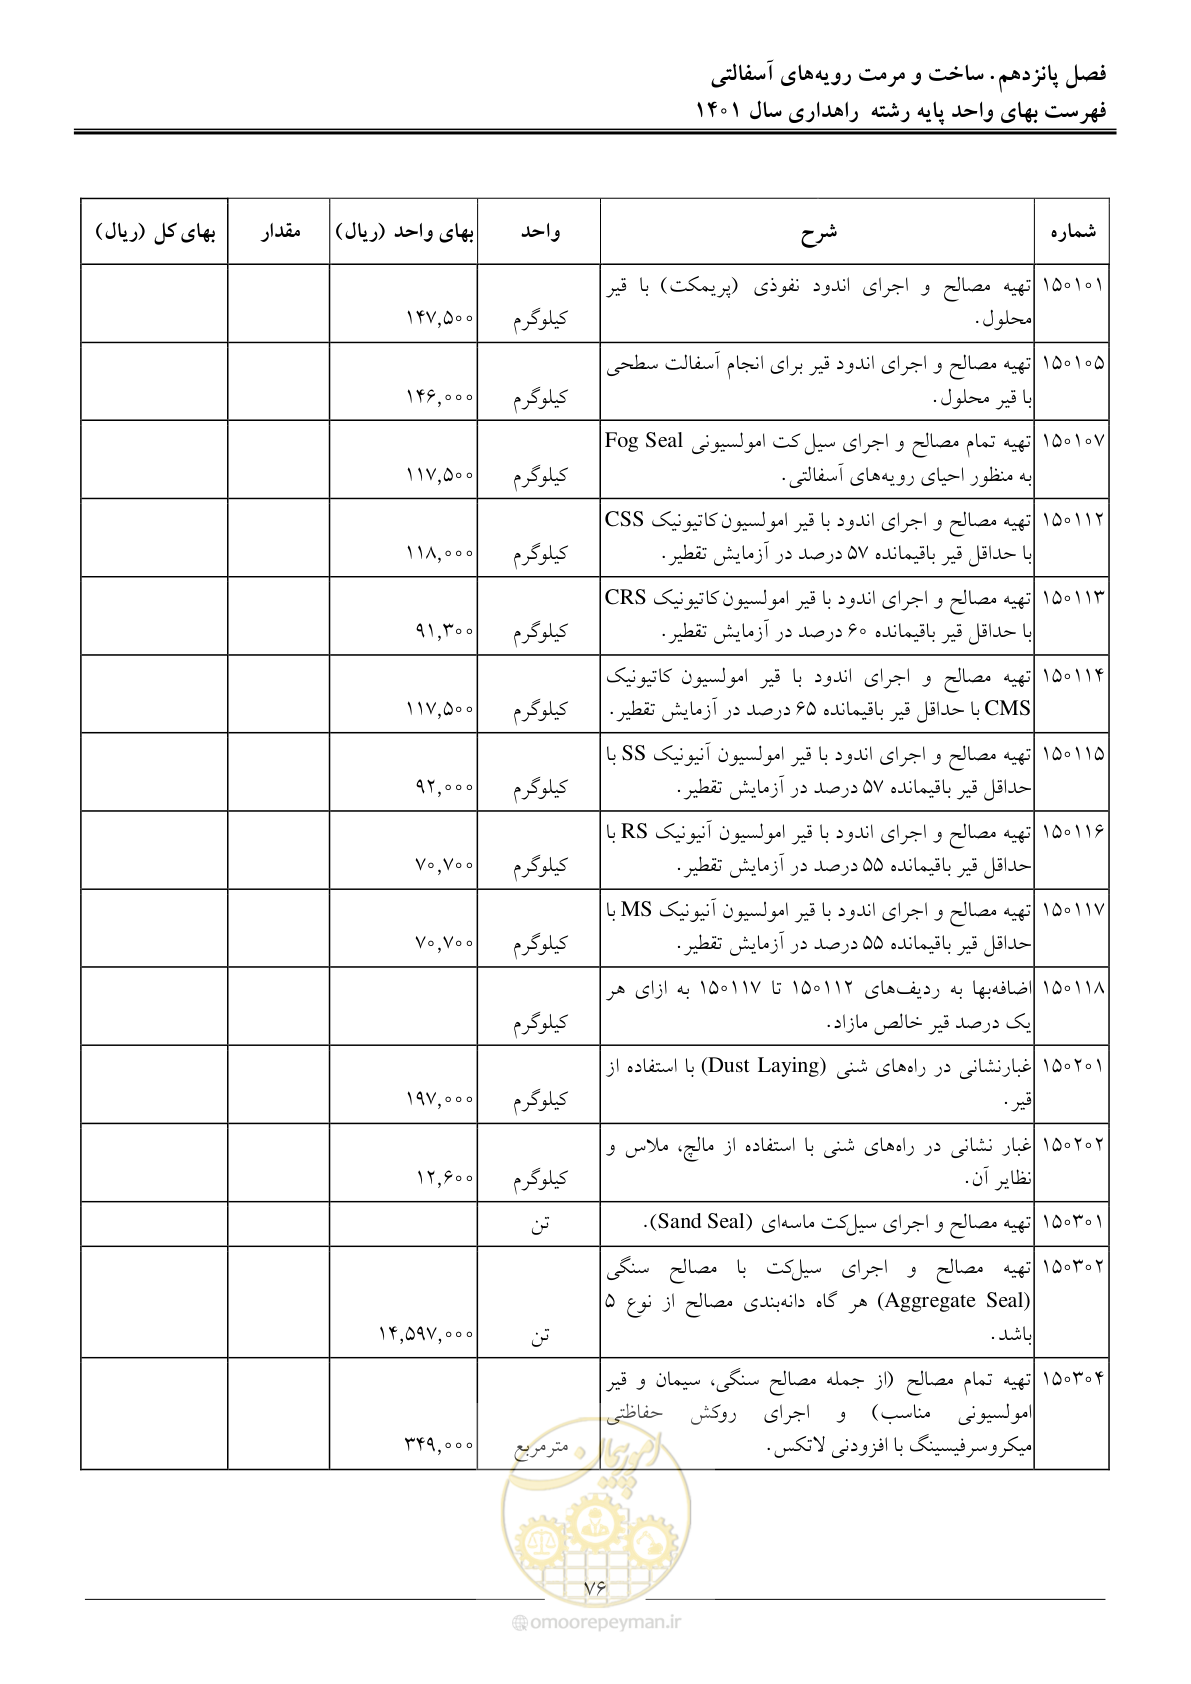 فصل پانزدهم. ساخت و مرمت رویه‌های آسفالتی
فهرست بهای واحد پایه رشته راهداری سال ۱۴۰۱
شماره شرح واحد بهای واحد (ریال) مقدار بهای کل (ریال)
۱۵۰۱۰۱ تهیه مصالح و اجرای اندود نفوذی (پریمکت) با قیر
محلول. کیلوگرم ۱۴۷,۵۰۰
۱۵۰۱۰۵ تهیه مصالح و اجرای اندود قیر برای انجام آسفالت سطحی
با قیر محلول. کیلوگرم ۱۴۶,۰۰۰
۱۵۰۱۰۷ تهیه تمام مصالح و اجرای سیل‌کت امولسیونی Fog Seal
به منظور احیای رویه‌های آسفالتی. کیلوگرم ۱۱۷,۵۰۰
۱۵۰۱۱۲ تهیه مصالح و اجرای اندود با قیر امولسیون کاتیونیک CSS
با حداقل قیر باقیمانده ۵۷ درصد در آزمایش تقطیر. کیلوگرم ۱۱۸,۰۰۰
۱۵۰۱۱۳ تهیه مصالح و اجرای اندود با قیر امولسیون کاتیونیک CRS
با حداقل قیر باقیمانده ۶۰ درصد در آزمایش تقطیر. کیلوگرم ۹۱,۳۰۰
۱۵۰۱۱۴ تهیه مصالح و اجرای اندود با قیر امولسیون کاتیونیک
CMS با حداقل قیر باقیمانده ۶۵ درصد در آزمایش تقطیر. کیلوگرم ۱۱۷,۵۰۰
۱۵۰۱۱۵ تهیه مصالح و اجرای اندود با قیر امولسیون آنیونیک SS با
حداقل قیر باقیمانده ۵۷ درصد در آزمایش تقطیر. کیلوگرم ۹۲,۰۰۰
۱۵۰۱۱۶ تهیه مصالح و اجرای اندود با قیر امولسیون آنیونیک RS با
حداقل قیر باقیمانده ۵۵ درصد در آزمایش تقطیر. کیلوگرم ۷۰,۷۰۰
۱۵۰۱۱۷ تهیه مصالح و اجرای اندود با قیر امولسیون آنیونیک MS با
حداقل قیر باقیمانده ۵۵ درصد در آزمایش تقطیر. کیلوگرم ۷۰,۷۰۰
۱۵۰۱۱۸ اضافه‌بها به ردیف‌های ۱۵۰۱۱۲ تا ۱۵۰۱۱۷ به ازای هر
یک درصد قیر خالص مازاد. کیلوگرم
۱۵۰۲۰۱ غبارنشانی در راه‌های شنی (Dust Laying) با استفاده از
قیر. کیلوگرم ۱۹۷,۰۰۰
۱۵۰۲۰۲ غبار نشانی در راه‌های شنی با استفاده از مالچ، ملاس و
نظایر آن. کیلوگرم ۱۲,۶۰۰
۱۵۰۳۰۱ تهیه مصالح و اجرای سیل‌کت ماسه‌ای (Sand Seal). تن
۱۵۰۳۰۲ تهیه مصالح و اجرای سیل‌کت با مصالح سنگی
(Aggregate Seal) هر گاه دانه‌بندی مصالح از نوع ۵
باشد. تن ۱۴,۵۹۷,۰۰۰
۱۵۰۳۰۴ تهیه تمام مصالح (از جمله مصالح سنگی، سیمان و قیر
امولسیونی مناسب) و اجرای روکش حفاظتی
میکروسرفیسینگ با افزودنی لاتکس. مترمربع ۳۴۹,۰۰۰
امور پیمان
۷۶
@omoorepeyman.ir